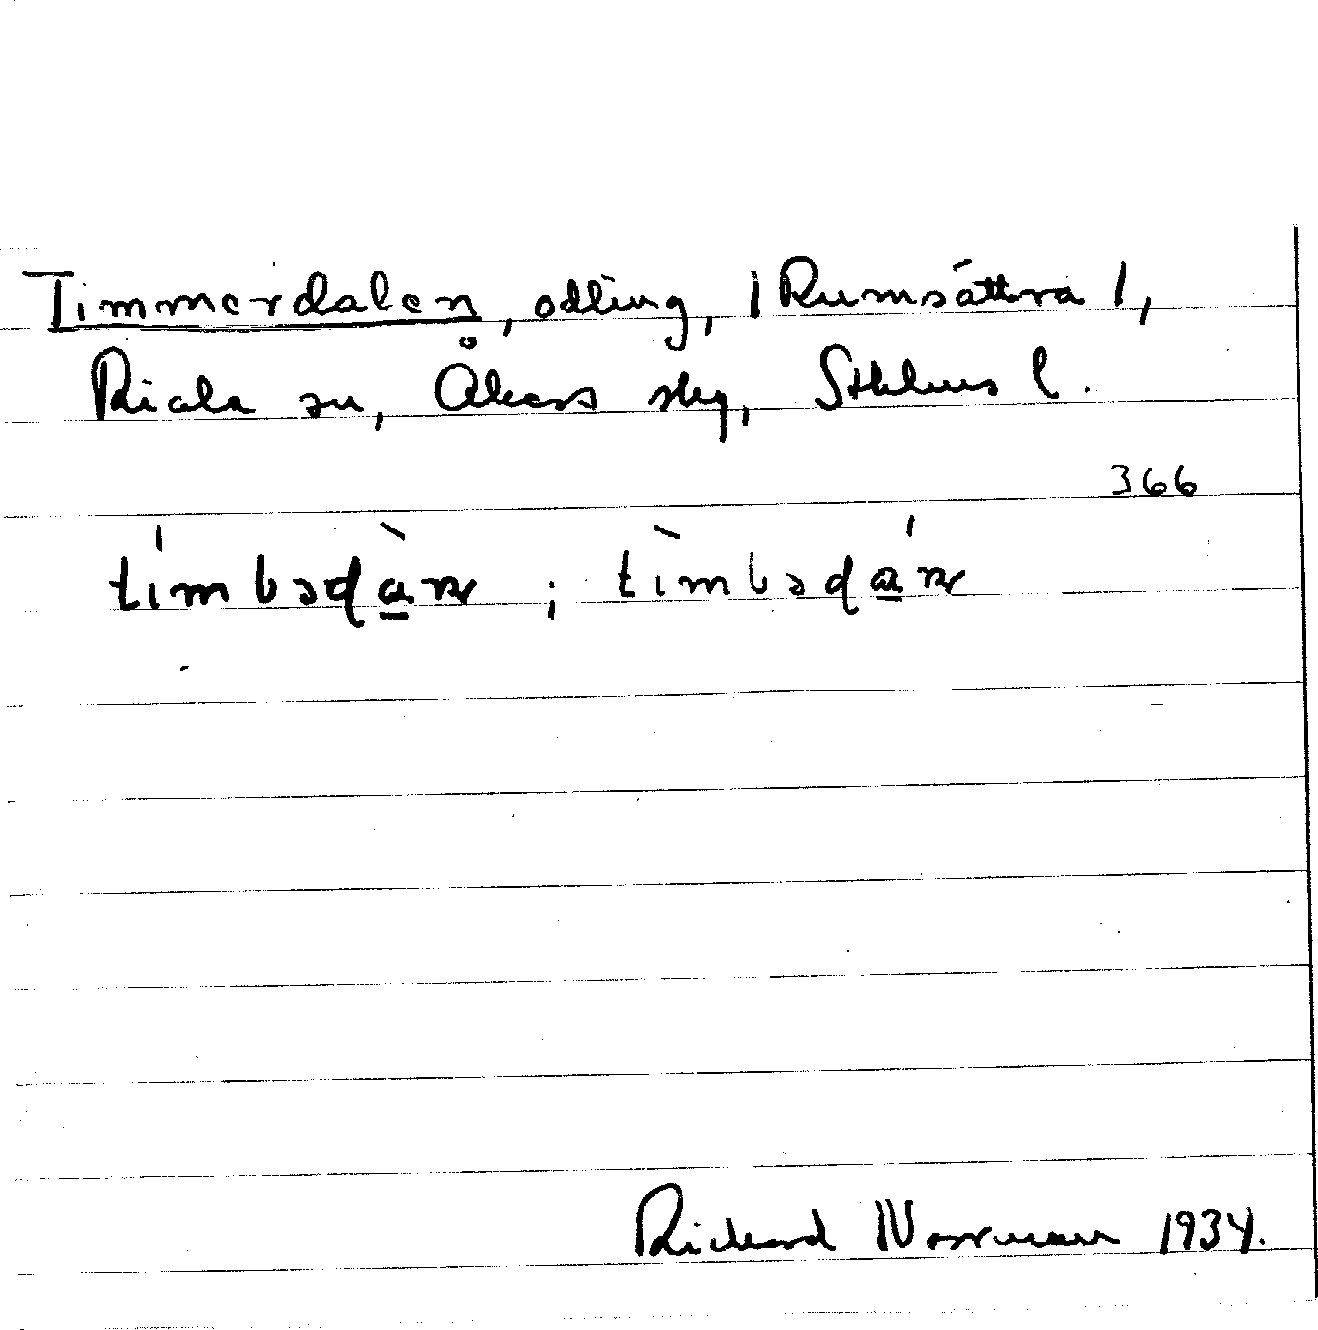 Timmerdalen, odling, | Rumsättra |,
Riala sn, Åkers skg, Sthlms l.
366
tímbədà̱n ; tìmbədá̱n
Richard Norrman 1934.